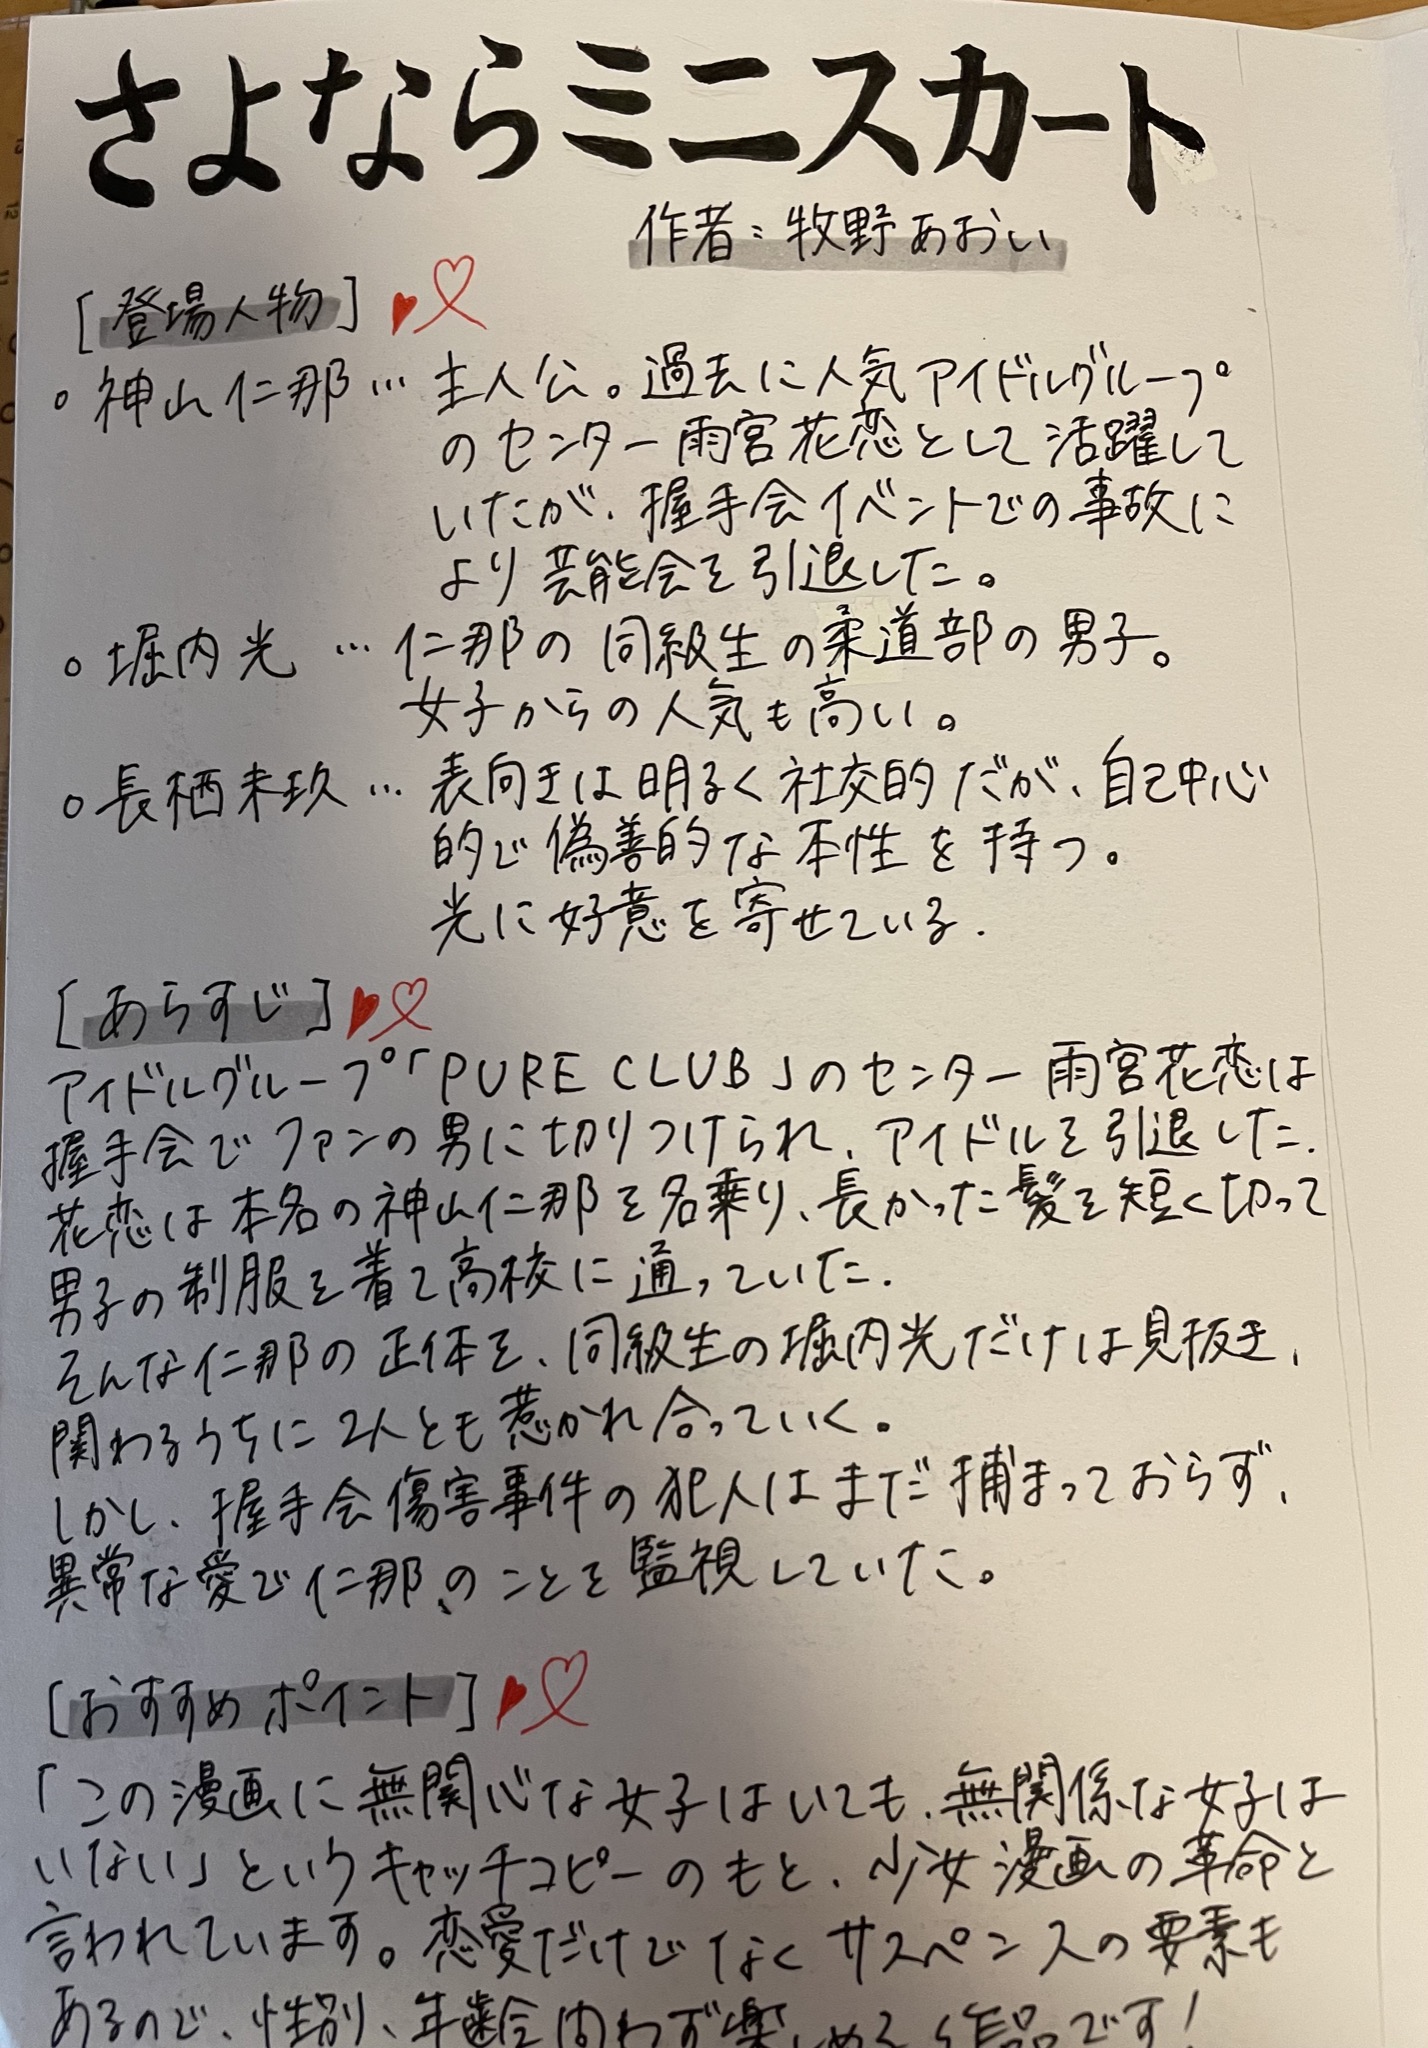 さよならミニスカート
作者：牧野あおい
[登場人物]
。神山仁那… 主人公。過去に人気アイドルグループ
のセンター雨宮花恋として活躍して
いたが、握手会イベントでの事故に
より芸能会を引退した。
。堀内光 … 仁那の同級生の柔道部の男子。
女子からの人気も高い。
。長栖未玖… 表向きは明るく社交的だが、自己中心
的で偽善的な本性を持つ。
光に好意を寄せている.
[あらすじ]
アイドルグループ「PURE CLUB」のセンター雨宮花恋は
握手会でファンの男に切りつけられ、アイドルを引退した.
花恋は本名の神山仁那を名乗り、長かった髪を短く切って
男子の制服を着て高校に通っていた.
そんな仁那の正体を、同級生の堀内光だけは見抜き、
関わるうちに2人とも惹かれ合っていく。
しかし、握手会傷害事件の犯人はまだ捕まっておらず、
異常な愛で仁那、のことを監視していた。
[おすすめポイント]
「この漫画に無関心な女子はいても、無関係な女子は
いない」というキャッチコピーのもと、少女漫画の革命と
言われています。恋愛だけでなくサスペンスの要素も
あるので、性別、年齢問わず楽しめる作品です！